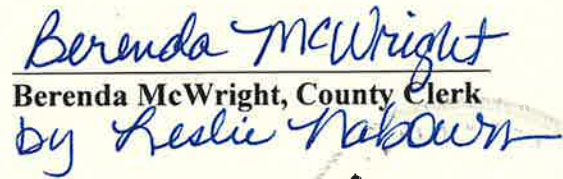 Berenda McWright
Berenda McWright, County Clerk
by Leslie Nabours